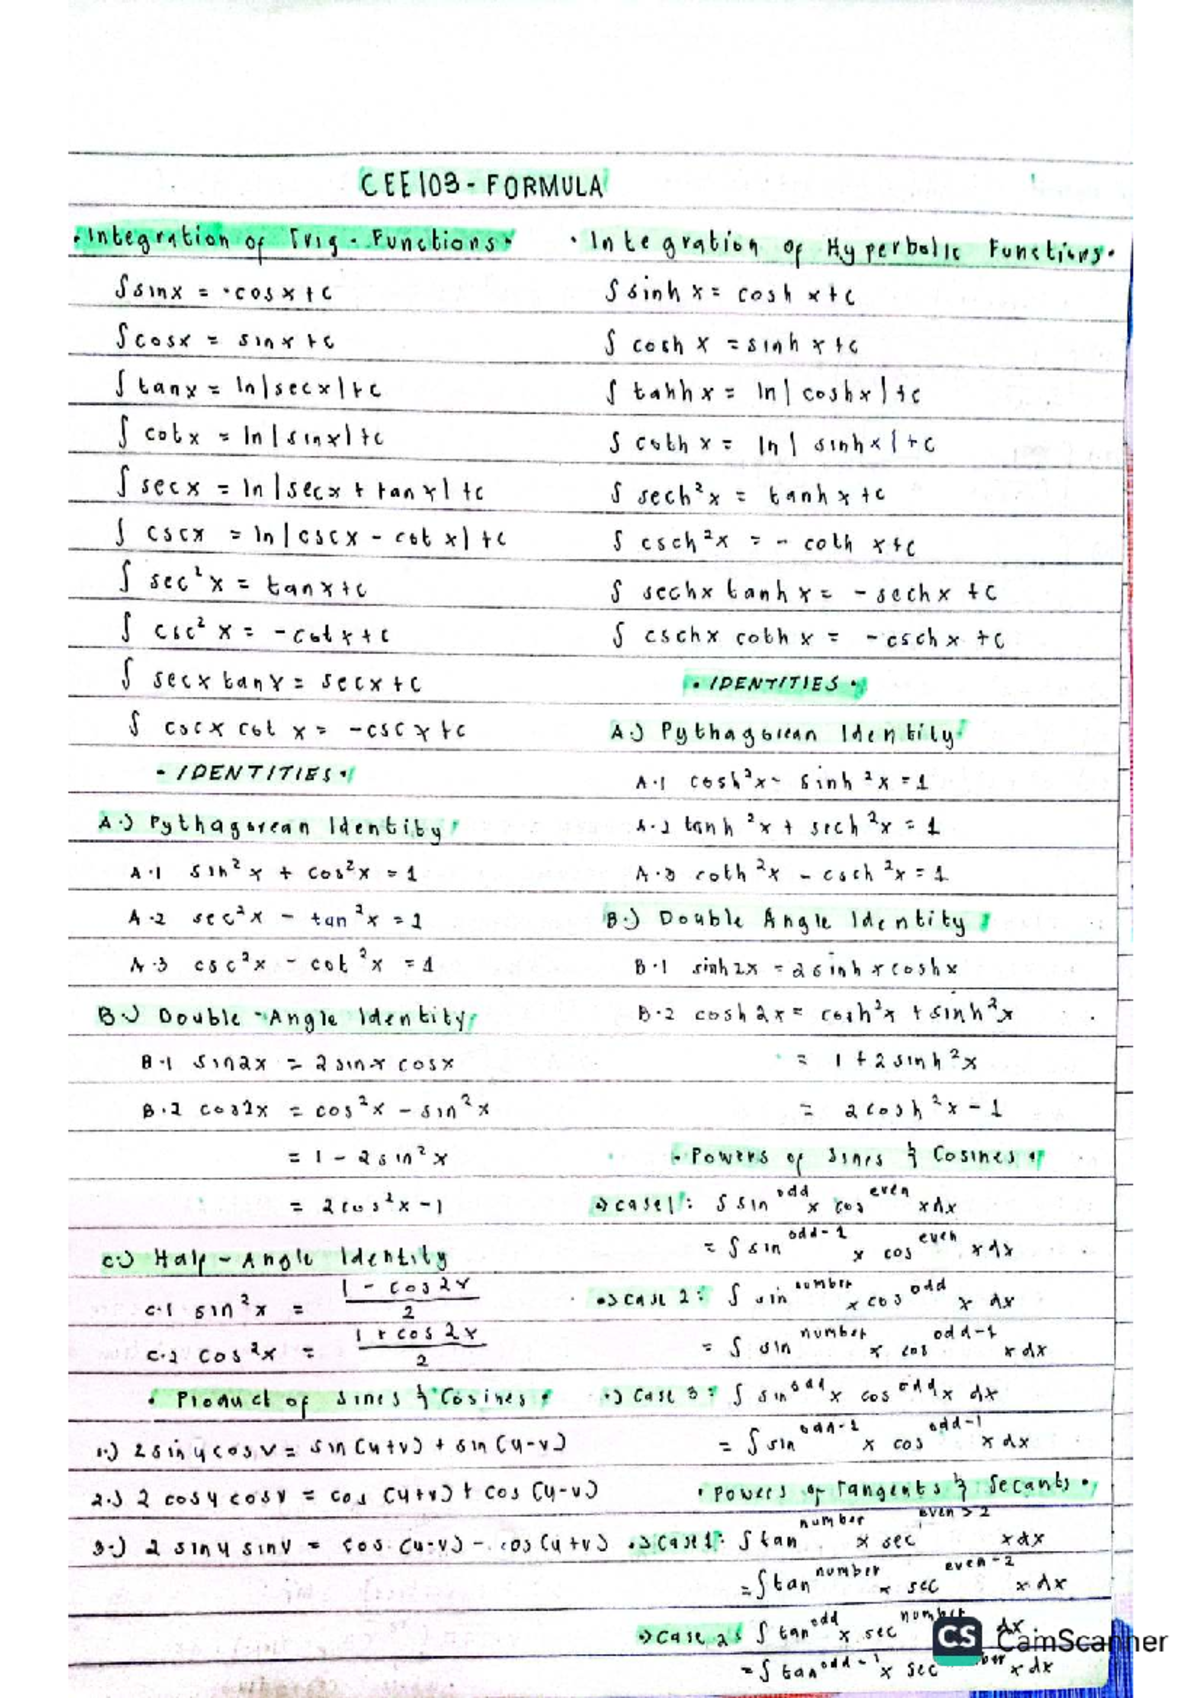 CEE103 - FORMULA
• Integration of Trig. Functions •
∫ sinx = -cosx + c
∫ cosx = sinx + c
∫ tanx = ln|secx| + c
∫ cotx = ln|sinx| + c
∫ secx = ln|secx + tanx| + c
∫ cscx = ln|cscx - cot x| + c
∫ sec²x = tanx + c
∫ csc²x = -cotx + c
∫ secx tanx = secx + c
∫ cscx cot x = -cscx + c
• IDENTITIES •
A.) Pythagorean Identity
A.1 sin²x + cos²x = 1
A.2 sec²x - tan²x = 1
A.3 csc²x - cot²x = 1
B.) Double-Angle Identity
B.1 sin2x = 2sinx cosx
B.2 cos2x = cos²x - sin²x
= 1 - 2sin²x
= 2cos²x - 1
C.) Half-Angle Identity
C.1 sin²x = (1 - cos2x)/2
C.2 cos²x = (1 + cos2x)/2
• Product of Sines & Cosines •
1.) 2sinu cosv = sin(u+v) + sin(u-v)
2.) 2 cosu cosv = cos(u+v) + cos(u-v)
3.) 2 sinu sinv = cos(u-v) - cos(u+v)
• Integration of Hyperbolic Functions •
∫ sinh x = cosh x + c
∫ cosh x = sinh x + c
∫ tanh x = ln|coshx| + c
∫ coth x = ln|sinhx| + c
∫ sech²x = tanhx + c
∫ csch²x = -coth x + c
∫ sechx tanhx = -sechx + c
∫ cschx cothx = -cschx + c
• IDENTITIES •
A.) Pythagorean Identity
A.1 cosh²x - sinh²x = 1
A.2 tanh²x + sech²x = 1
A.3 coth²x - csch²x = 1
B.) Double Angle Identity
B.1 sinh2x = 2sinhxcoshx
B.2 cosh2x = cosh²x + sinh²x
= 1 + 2sinh²x
= 2cosh²x - 1
• Powers of Sines & Cosines •
→ Case 1: ∫ sin^odd x cos^even x dx
= ∫ sin^odd-1 x cos^even x dx
→ Case 2: ∫ sin^number x cos^odd x dx
= ∫ sin^number x cos^odd-1 x dx
→ Case 3: ∫ sin^odd x cos^odd x dx
= ∫ sin^odd-1 x cos^odd-1 x dx
• Powers of Tangents & Secants •
→ Case 1: ∫ tan^number x sec^even>2 x dx
= ∫ tan^number x sec^even-2 x dx
→ Case 2: ∫ tan^odd x sec^number dx
= ∫ tan^odd-1 x sec x dx
CS CamScanner